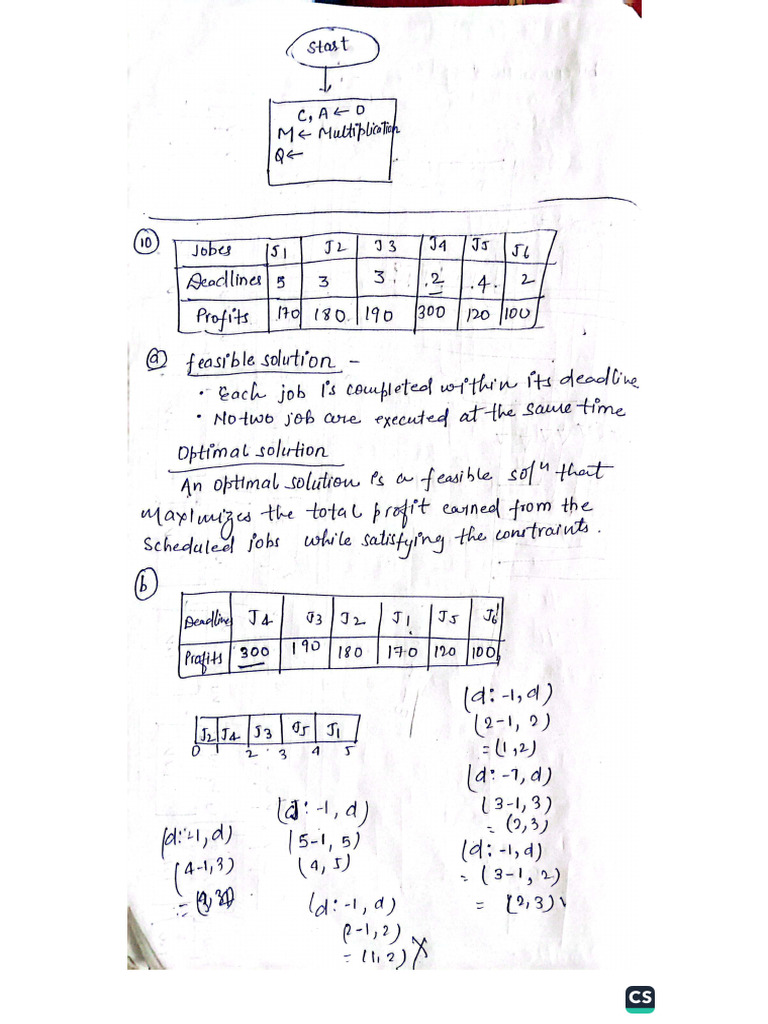 Start
C, A ← 0
M ← Multiplication
Q ←
10
Jobes J1 J2 J3 J4 J5 J6
Deadlines 5 3 3 2 4 2
Profits 170 180 190 300 120 100
a feasible solution -
• Each job is completed within its deadline
• No two job are executed at the same time
Optimal solution
An optimal solution is a feasible sol^n that
Maximizes the total profit earned from the
scheduled jobs while satisfying the constraints.
b
Deadlines J4 J3 J2 J1 J5 J6
Profits 300 190 180 170 120 100
J2 J4 J3 J5 J1
0 1 2 3 4 5
(di-1, d)
(2-1, 2)
= (1,2)
(di-1, d)
(3-1, 3)
= (2,3)
(di-1, d)
= (3-1, 2)
= (2,3)
(di-1, d)
(5-1, 5)
(4, 5)
(di-1, d)
(4-1,3)
=
(di-1, d)
2-1, 2)
= (1,2) X
CS